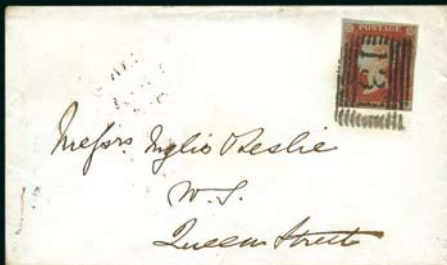 POSTAGE
131
Messrs Inglis & Leslie
W.S.
Queen Street